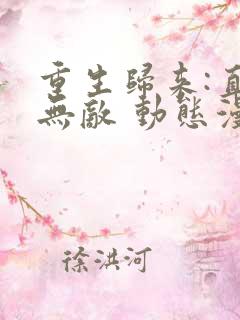 重生歸來:直
無敵 動態漫
徐洪河